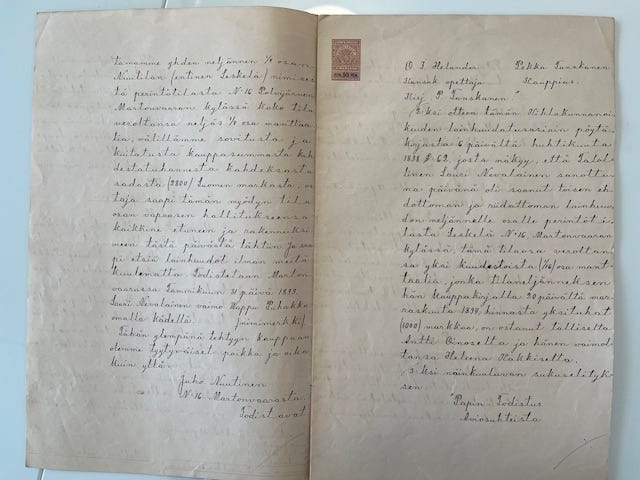 tamamme yhden neljännen ¼ osan
Nuutilan (entinen Leskelä) nimises
tä perintötilasta N:16 Polvijärven
Martonvaaran kylässä koko tila
verottansa neljäs ¼ osa mantta
lia, välillämme sovitusta ja
kuitatusta kauppasummasta kah
destatuhannesta kahdeksasta
sadasta (2800) Suomen markasta, os
taja saapi tämän myödyn tila
osan vapaasen hallitukseensa
kaikkine etuineen ja rakennuksi
neen tästä päivästä lähtien ja saa
pi etsiä lainhuudot ilman meitä
kuulematta. Todistetaan Marton
vaarassa Tammikuun 31 päivä 1893.
Lauri Nevalainen vaimo Huppu Puhakka
omalla kädellä. (nimimerkki)
Tähän ylempänä tehtyyn kauppaan
olemme tyytyväiset, paikka ja aika
kuin yllä.
Juho Nuutinen
N:16 Martonvaarasta.
Todistavat
50 PEN.
O. J. Helander Pekka Tanskanen
Kansak. opettaja Kauppias.
Kirj. P. Tanskanen"
2:ksi otteen tämän Kihlakunnanoi
keuden lainhuudatusasiain pöytä
kirjasta 6 päivältä huhtikuuta
1898 § 62, josta näkyy, että Talol
linen Lauri Nevalainen sanottu
na päivänä oli saanut toisen eh
dottoman ja riidattoman lainhuu
don neljännelle osalle perintöti
lasta Leskelä N:16, Martonvaaran
kylässä, tämä tilaosa verottan
sa yksi kuudestoista (1/16) osa mant
taalia, jonka tilaneljänneksen
hän Kauppakirjalla 20 päivältä mar
raskuuta 1894, hinnasta yksituhat
(1000) markkaa, on ostanut tallisetta
Antti Oinoselta ja hänen vaimol
tansa Heleena Häkkiseltä.
3:ksi näinkuuluvan sukuselityk
sen.
"Papin Todistus
Aviosuhteista